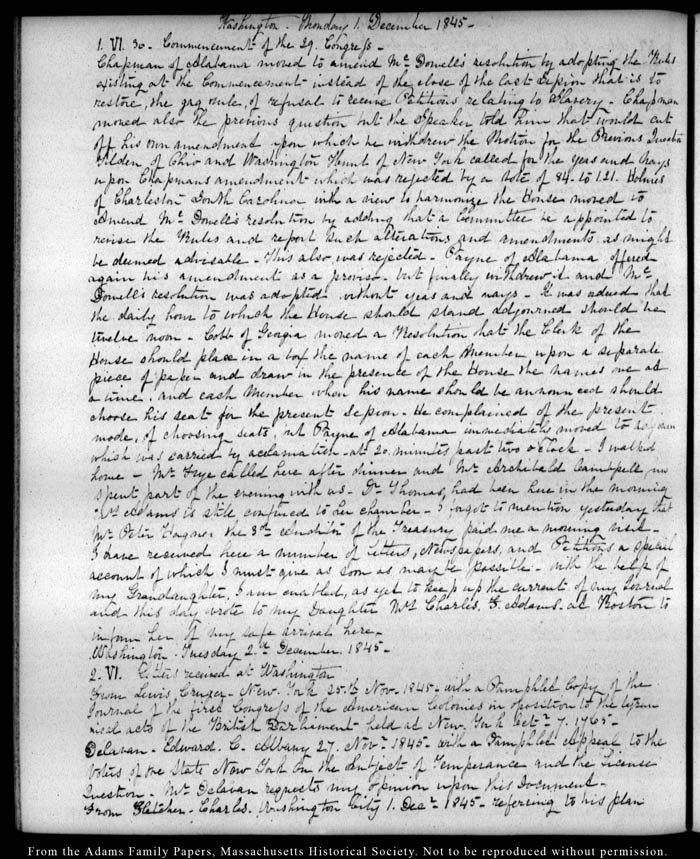 Washington. Monday 1. December 1845-
1. VI. 30. Commencement of the 29. Congress-
Chapman of Alabama moved to amend Mc Dowell's resolution by adopting the Rules
existing at the Commencement instead of the close of the last Session that is to
restore, the gag rule, of refusal to receive Petitions relating to Slavery- Chapman
moved also the previous question but the Speaker told him that would cut
off his own amendment upon which he withdrew the Motion for the Previous Question
Tilden of Ohio and Washington Hunt of New York called for the yeas and Nays
upon Chapmans amendment which was rejected by a vote of 84. to 121. Holmes
of Charleston South Carolina with a view to harmonize the House moved to
Amend Mc Dowell's resolution by adding that a Committee be appointed to
revise the Rules and report such alterations and amendments as might
be deemed advisable- This also was rejected- Payne of Alabama offered
again his amendment as a proviso- but finally withdrew it and Mc
Dowell's resolution was adopted without yeas and nays- It was ordered that
the daily hour to which the House should stand adjourned should be
twelve noon- Cobb of Georgia moved a Resolution that the Clerk of the
House should place in a box the name of each Member, upon a separate
piece of paper and draw in the presence of the House the names one at
a time, and each Member when his name should be announced should
choose his seat for the present Session- He complained of the present
mode, of choosing seats, but Payne of Alabama immediately moved to adjourn
which was carried by acclamation- at 20. minutes past two o'Clock- I walked
home- Mr Frye called here after dinner and Mr Archibald Campbell junr
spent part of the evening with us- Dr Thomas, had been here in the morning
Mrs Adams is still confined to her chamber- I forgot to mention yesterday that
Mr Peter Hagner the 3rd Auditor of the Treasury paid me a morning visit-
I have received here a number of Letters, Newspapers, and Petitions a special
account of which I must give as soon as may be possible- with the help of
my Grandaughter, I am enabled, as yet to keep up the current of my Journal
and this day wrote to my Daughter Mrs Charles. F. Adams- at Boston to
inform her of my safe arrival here-
Washington. Tuesday 2d December. 1845-
2. VI. Letters received at Washington
From Lewis, Cruger- New York 25th Nov- 1845- with a Pamphlet Copy of the
Journal of the first Congress of the American Colonies in oposition to the tyran
nical acts of the British Parliament held at New York Octr 7. 1765-
Delavan- Edward. C. Albany 27. Novr 1845- with a Pamphlet Appeal to the
Voters of the State New York on the Subject of Temperance and the License
Question- Mr Delavan requests my opinion upon this Document-
From Fletcher. Charles. Washington City 1. Decr 1845- refering to his plan
From the Adams Family Papers, Massachusetts Historical Society. Not to be reproduced without permission.